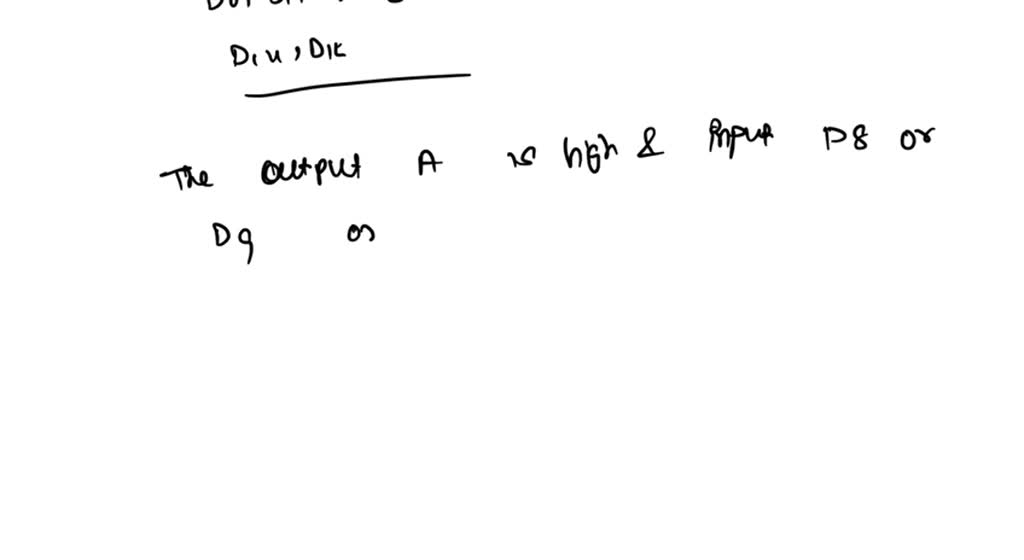 D14, D15
The output A is high & input D8 or
D9 or